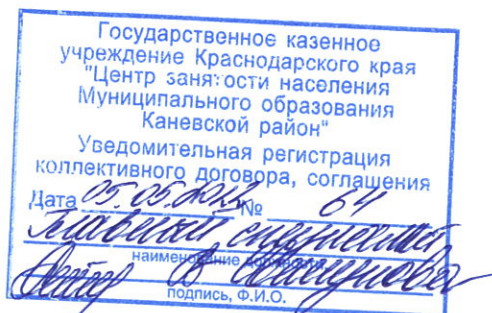 Государственное казенное
учреждение Краснодарского края
"Центр занятости населения
Муниципального образования
Каневской район"
Уведомительная регистрация
коллективного договора, соглашения
Дата 05.05.2022 № 64
Главный специалист
наименование должности
подпись, Ф.И.О.